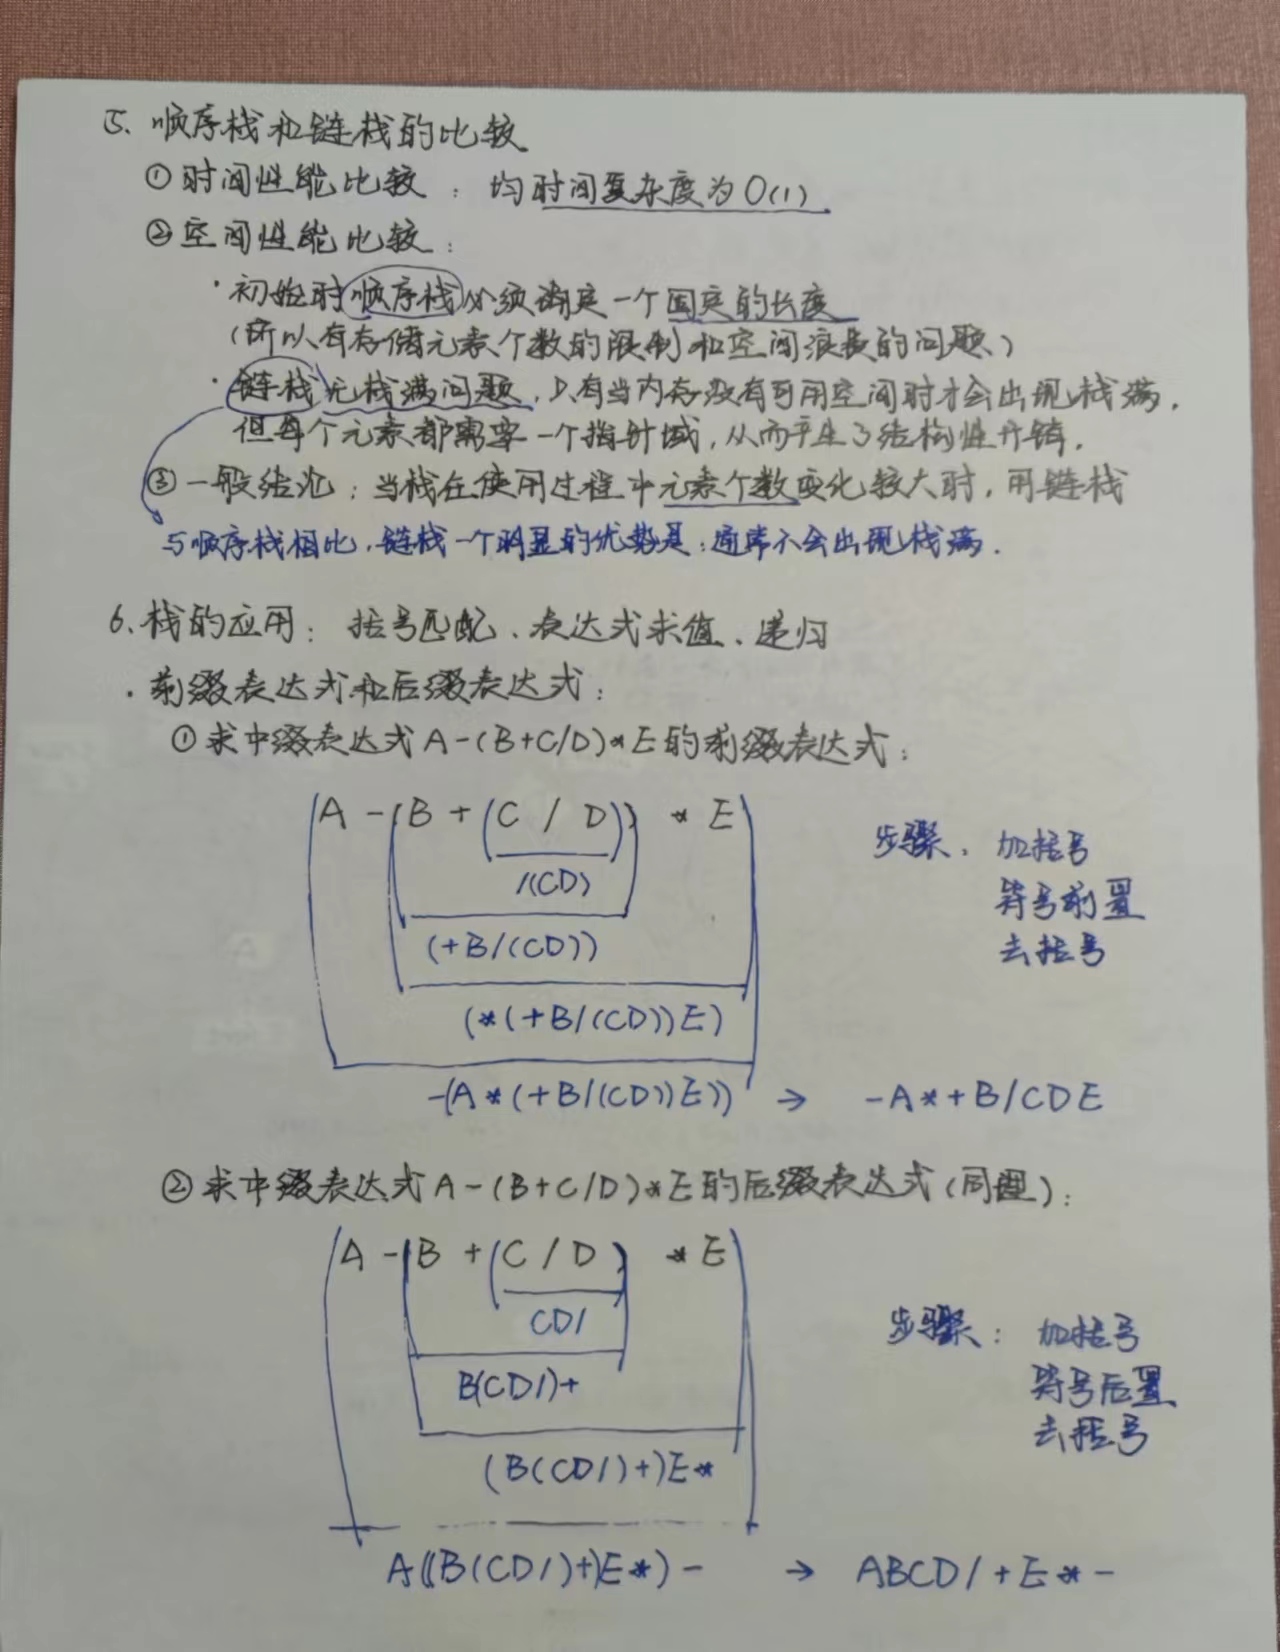 5、顺序栈和链栈的比较
①时间性能比较：均时间复杂度为O(1)
②空间性能比较：
·初始时顺序栈必须确定一个固定的长度
(所以有存储元素个数的限制和空间浪费的问题)
·链栈无栈满问题，只有当内存没有可用空间时才会出现栈满，
但每个元素都需要一个指针域，从而产生了结构性开销．
③一般结论：当栈在使用过程中元素个数变化较大时，用链栈
与顺序栈相比，链栈一个明显的优势是：通常不会出现栈满．
6、栈的应用：括号匹配、表达式求值、递归
·前缀表达式和后缀表达式：
①求中缀表达式A-(B+C/D)*E的前缀表达式：
(A-(B+(C/D))*E)
/(CD)
(+B/(CD))
(*(+B/(CD))E)
-(A*(+B/(CD))E)) → -A*+B/CDE
步骤：加括号
符号前置
去括号
②求中缀表达式A-(B+C/D)*E的后缀表达式(同理)：
(A-(B+(C/D)*E)
CD/
B(CD/)+
(B(CD/)+)E*
A((B(CD/)+)E*)- → ABCD/+E*-
步骤：加括号
符号后置
去括号